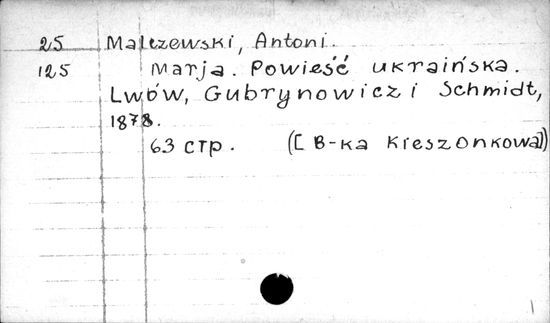 25 Malczewski, Antoni.
125 Marja. Powieść ukraińska.
Lwów, Gubrynowicz i Schmidt,
1878.
63 стр. ([B-ka Kieszonkowa])